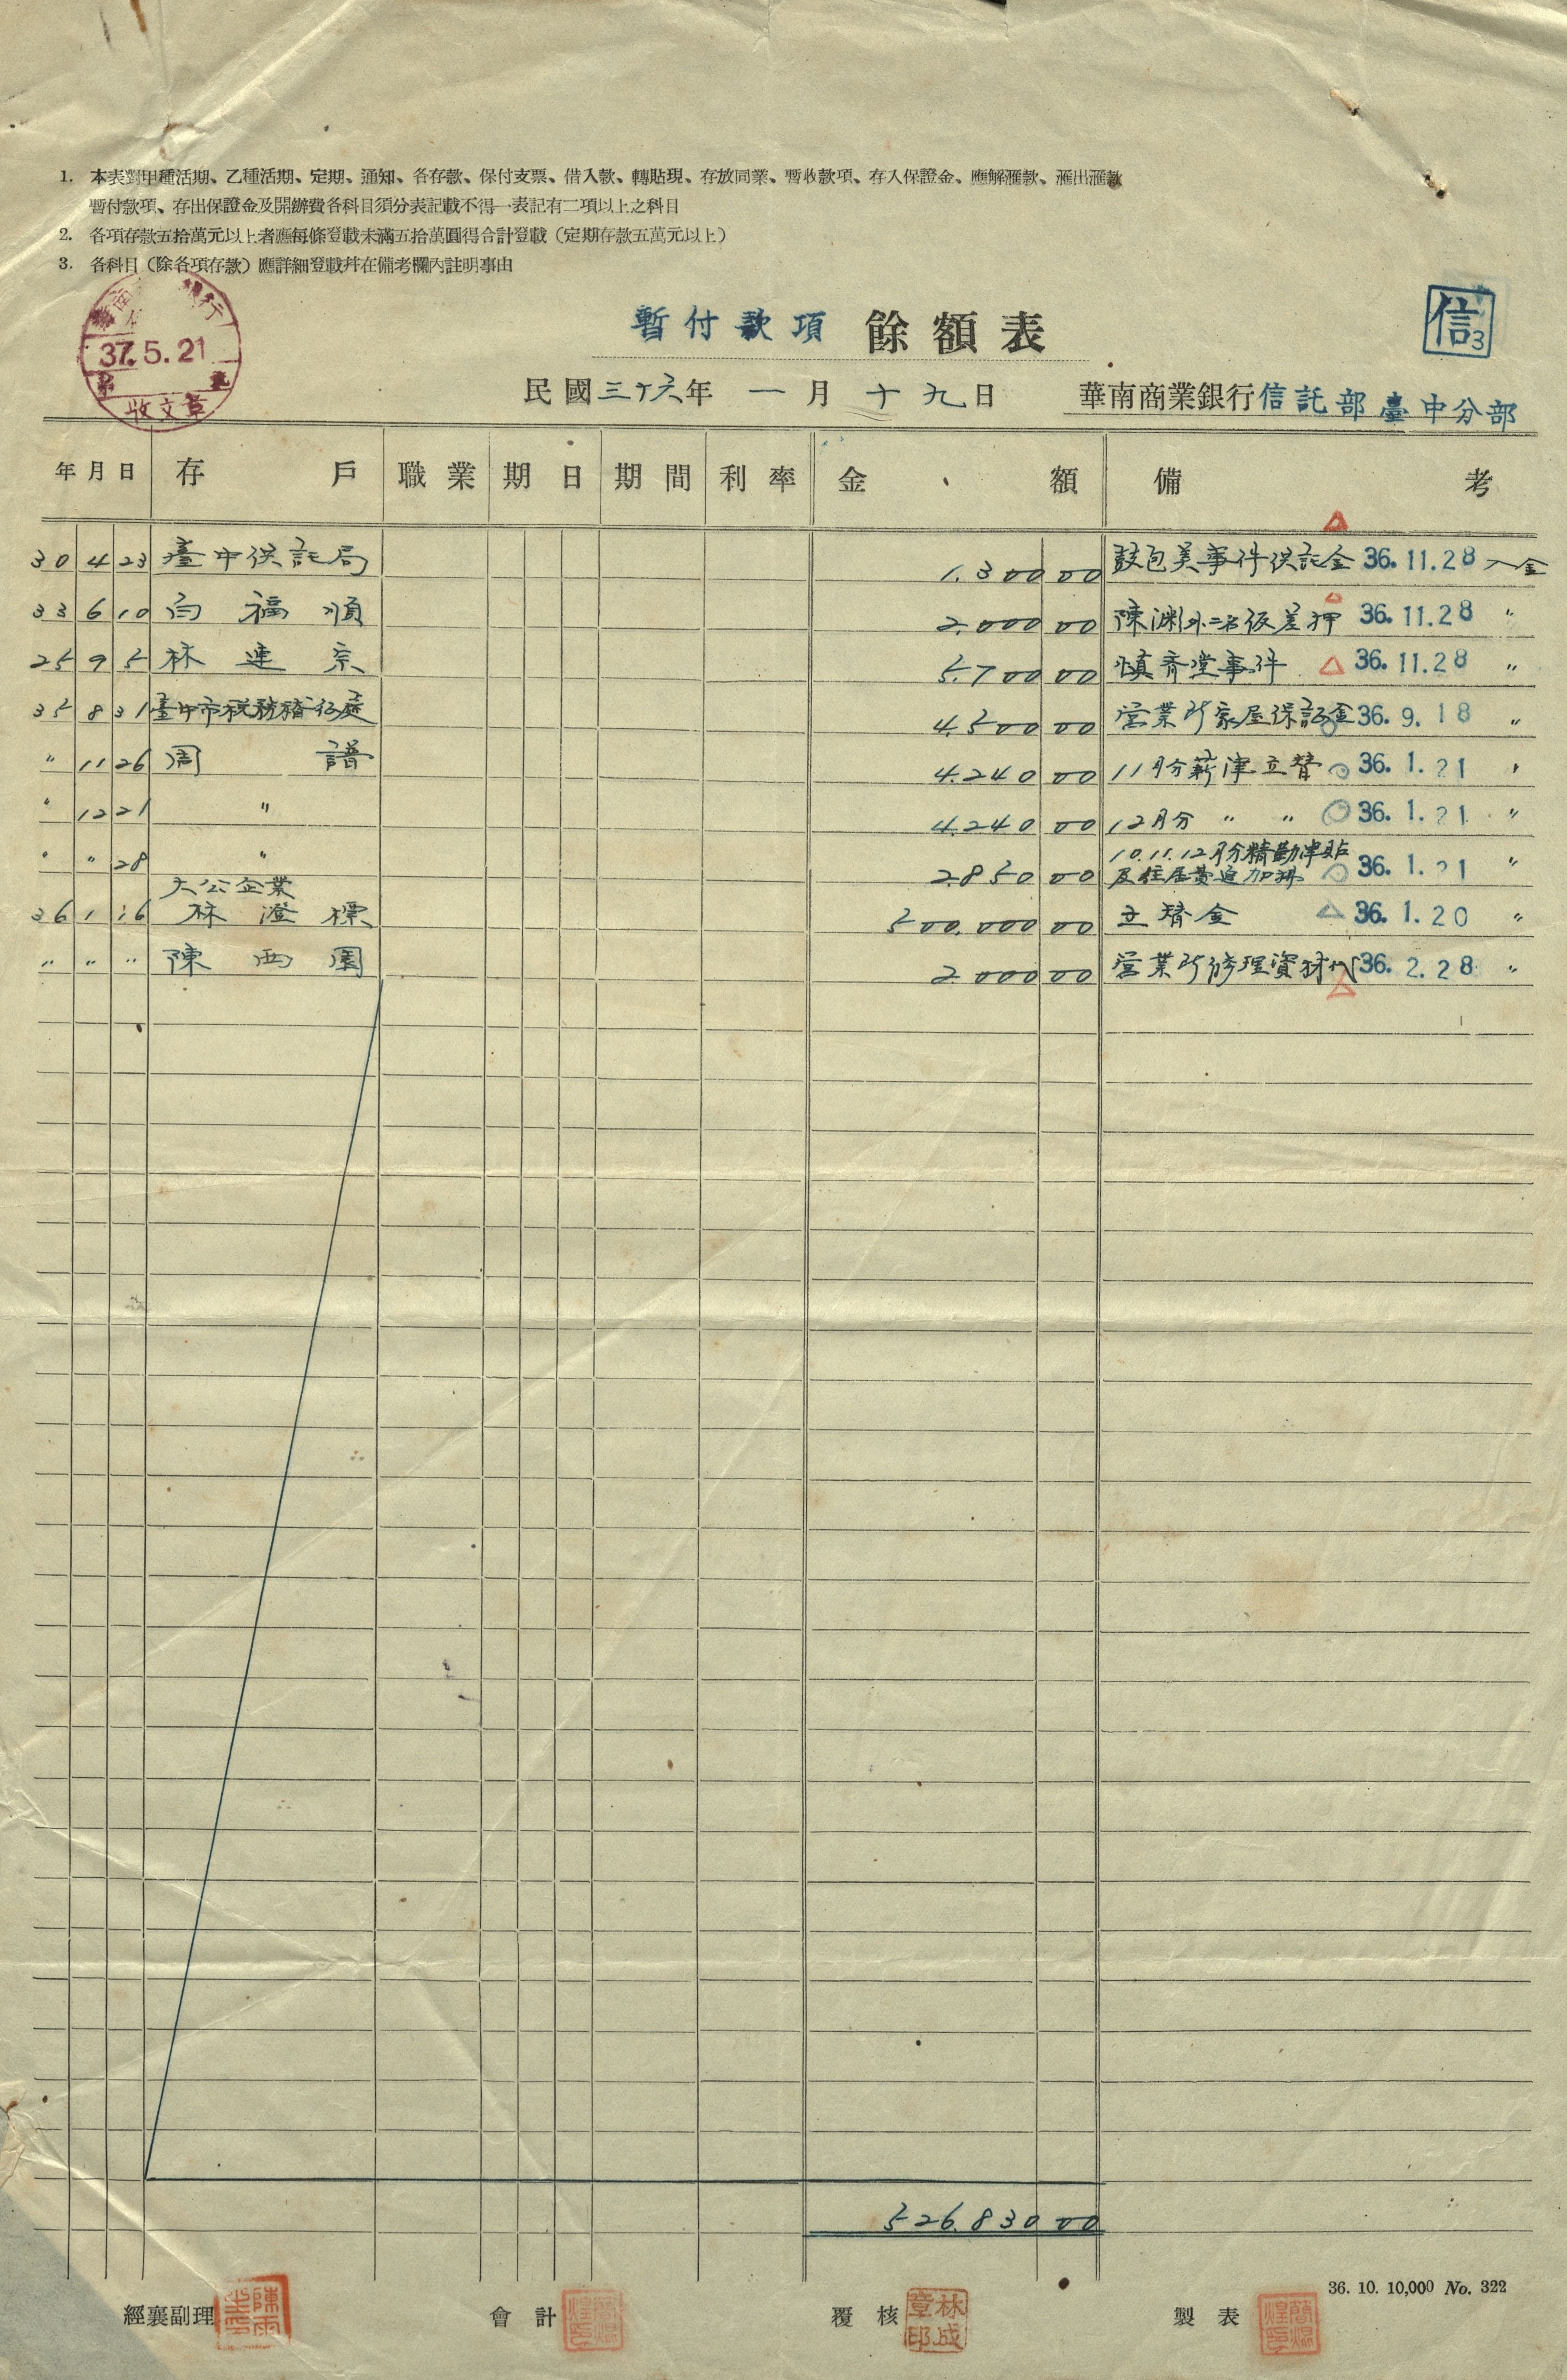 1. 本表對甲種活期、乙種活期、定期、通知、各存款、保付支票、借入款、轉貼現、存放同業、暫收款項、存入保證金、應解滙款、滙出滙款
暫付款項、存出保證金及開辦費各科目須分表記載不得一表記有二項以上之科目
2. 各項存款五拾萬元以上者應每條登載未滿五拾萬圓得合計登載(定期存款五萬元以上)
3. 各科目(除各項存款)應詳細登載幷在備考欄內註明事由
37.5.21
收文章
暫付款項 餘額表
信3
民國三十六年 一月十九日 華南商業銀行信託部臺中分部
年月日 存戶 職業 期日 期間 利率 金額 備考
30 4 23 臺中供託局 1.300 00 事件供託金 36.11.28 入金
33 6 10 白福順 2.000 00 陳渊外二名仮差押 36.11.28 〃
25 9 5 林連宗 5.700 00 慎齋堂事件 36.11.28 〃
35 8 31 臺中市稅務稽征處 4.500 00 営業所家屋保証金 36.9.18 〃
〃 11 26 周譜 4.240 00 11月分薪津立替 36.1.21 〃
〃 12 21 〃 4.240 00 12月分 〃 〃 36.1.21 〃
〃 〃 28 〃 2.850 00 10.11.12月分精勤津貼
及住居費追加 36.1.21 〃
大公企業
36 1 16 林澄標 500.000 00 立替金 36.1.20 〃
〃 〃 〃 陳西園 2.000 00 営業所修理資材代 36.2.28 〃
526.830 00
36. 10. 10,000 No. 322
經襄副理 會計 覆核 林成章印 製表